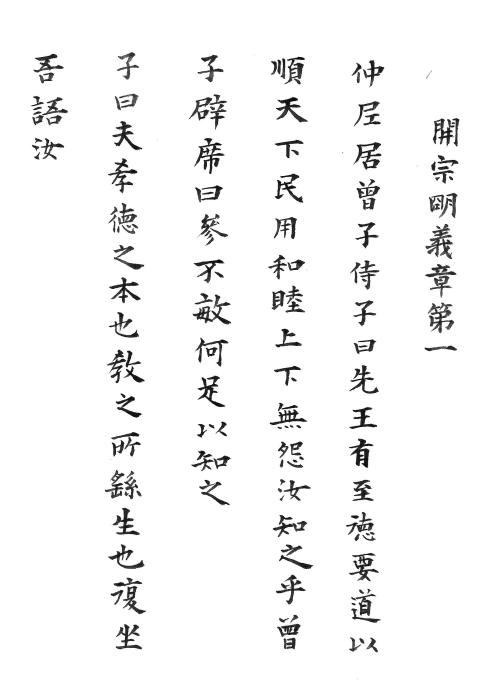 開宗明義章第一
仲尼居曾子侍子曰先王有至德要道以
順天下民用和睦上下無怨汝知之乎曾
子辟席曰參不敏何足以知之
子曰夫孝德之本也教之所繇生也復坐
吾語汝